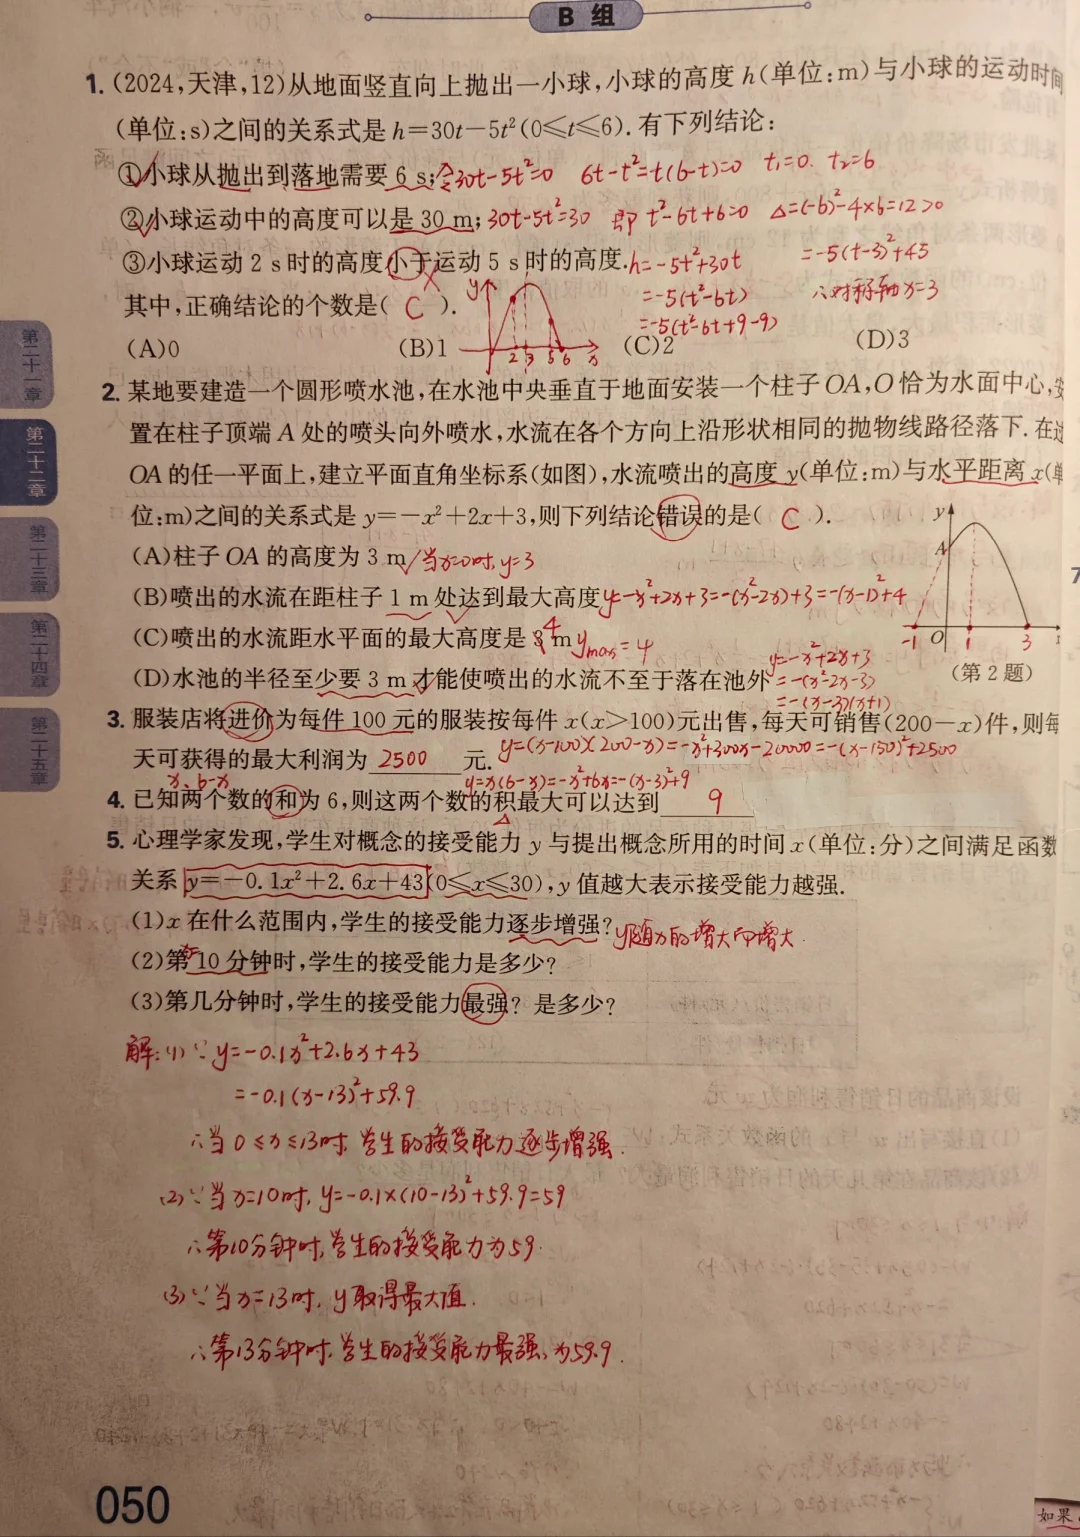 B 组
1. (2024,天津,12)从地面竖直向上抛出一小球,小球的高度 h(单位:m)与小球的运动时间
(单位:s)之间的关系式是 h=30t-5t²(0≤t≤6). 有下列结论:
①小球从抛出到落地需要 6 s; 令30t-5t²=0 6t-t²=t(6-t)=0 t₁=0. t₂=6
②小球运动中的高度可以是 30 m; 30t-5t²=30 即 t²-6t+6=0 Δ=(-6)²-4×6=12>0
③小球运动 2 s 时的高度小于运动 5 s 时的高度. h=-5t²+30t =-5(t-3)²+45
=-5(t²-6t) ∴对称轴x=3
其中,正确结论的个数是( C ). y
=-5(t²-6t+9-9)
(A)0 (B)1 2 3 5 6 x (C)2 (D)3
2. 某地要建造一个圆形喷水池,在水池中央垂直于地面安装一个柱子 OA,O 恰为水面中心,安
置在柱子顶端 A 处的喷头向外喷水,水流在各个方向上沿形状相同的抛物线路径落下. 在过
OA 的任一平面上,建立平面直角坐标系(如图),水流喷出的高度 y(单位:m)与水平距离 x(单
位:m)之间的关系式是 y=-x²+2x+3,则下列结论错误的是( C ).
y
A
(A)柱子 OA 的高度为 3 m 当x=0时,y=3
(B)喷出的水流在距柱子 1 m 处达到最大高度 y=-x²+2x+3=-(x²-2x)+3=-(x-1)²+4
-1 O 1 3
(C)喷出的水流距水平面的最大高度是 3 m 4 ymax=4
y=-x²+2x+3
(D)水池的半径至少要 3 m 才能使喷出的水流不至于落在池外 =-(x²-2x-3)
(第 2 题)
=-(x-3)(x+1)
3. 服装店将进价为每件 100 元的服装按每件 x(x>100)元出售,每天可销售(200-x)件,则每
天可获得的最大利润为 2500 元. y=(x-100)(200-x)=-x²+300x-20000=-(x-150)²+2500
x、6-x y=x(6-x)=-x²+6x=-(x-3)²+9
4. 已知两个数的和为 6,则这两个数的积最大可以达到 9
5. 心理学家发现,学生对概念的接受能力 y 与提出概念所用的时间 x(单位:分)之间满足函数
关系 y=-0.1x²+2.6x+43(0≤x≤30),y 值越大表示接受能力越强.
(1)x 在什么范围内,学生的接受能力逐步增强? y随x的增大而增大.
(2)第 10 分钟时,学生的接受能力是多少?
(3)第几分钟时,学生的接受能力最强? 是多少?
解:(1)∵y=-0.1x²+2.6x+43
=-0.1(x-13)²+59.9
∴当 0≤x≤13时,学生的接受能力逐步增强.
(2)∵当x=10时,y=-0.1×(10-13)²+59.9=59
∴第10分钟时,学生的接受能力为59.
(3)∵当x=13时,y取得最大值.
∴第13分钟时,学生的接受能力最强,为59.9.
第二十一章
第二十二章
第二十三章
第二十四章
第二十五章
7
050
如果